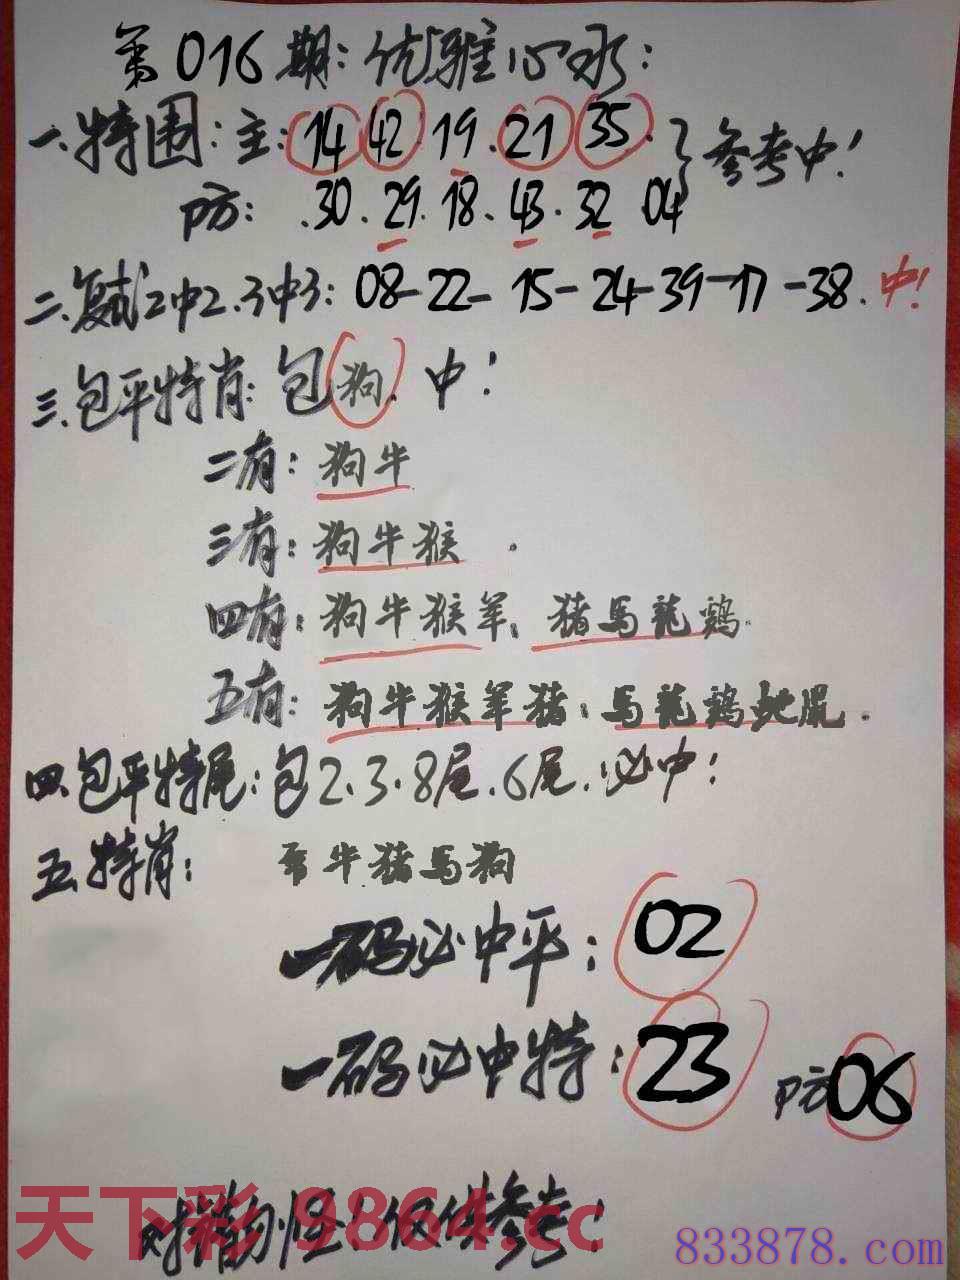 第016期：优雅心水：
一.特围：主：14 42.19.21 35. }参考中！
防：.30.29.18.43.32 04
二.复式2中2.3中3：08-22-15-24-39-17-38.中！
三.包平特肖：包狗.中！
二有：狗牛
三有：狗牛猴.
四有：狗牛猴羊；猪馬龍鷄.
五有：狗牛猴羊猪；馬龍鷄蛇鼠.
四.包平特尾：包2.3.8尾.6尾.必中！
五.特肖：牛猪馬狗
一码必中平：02
一码必中特：23 防06
勿怪！仅供参考！
天下彩 9864.cc
833878.com